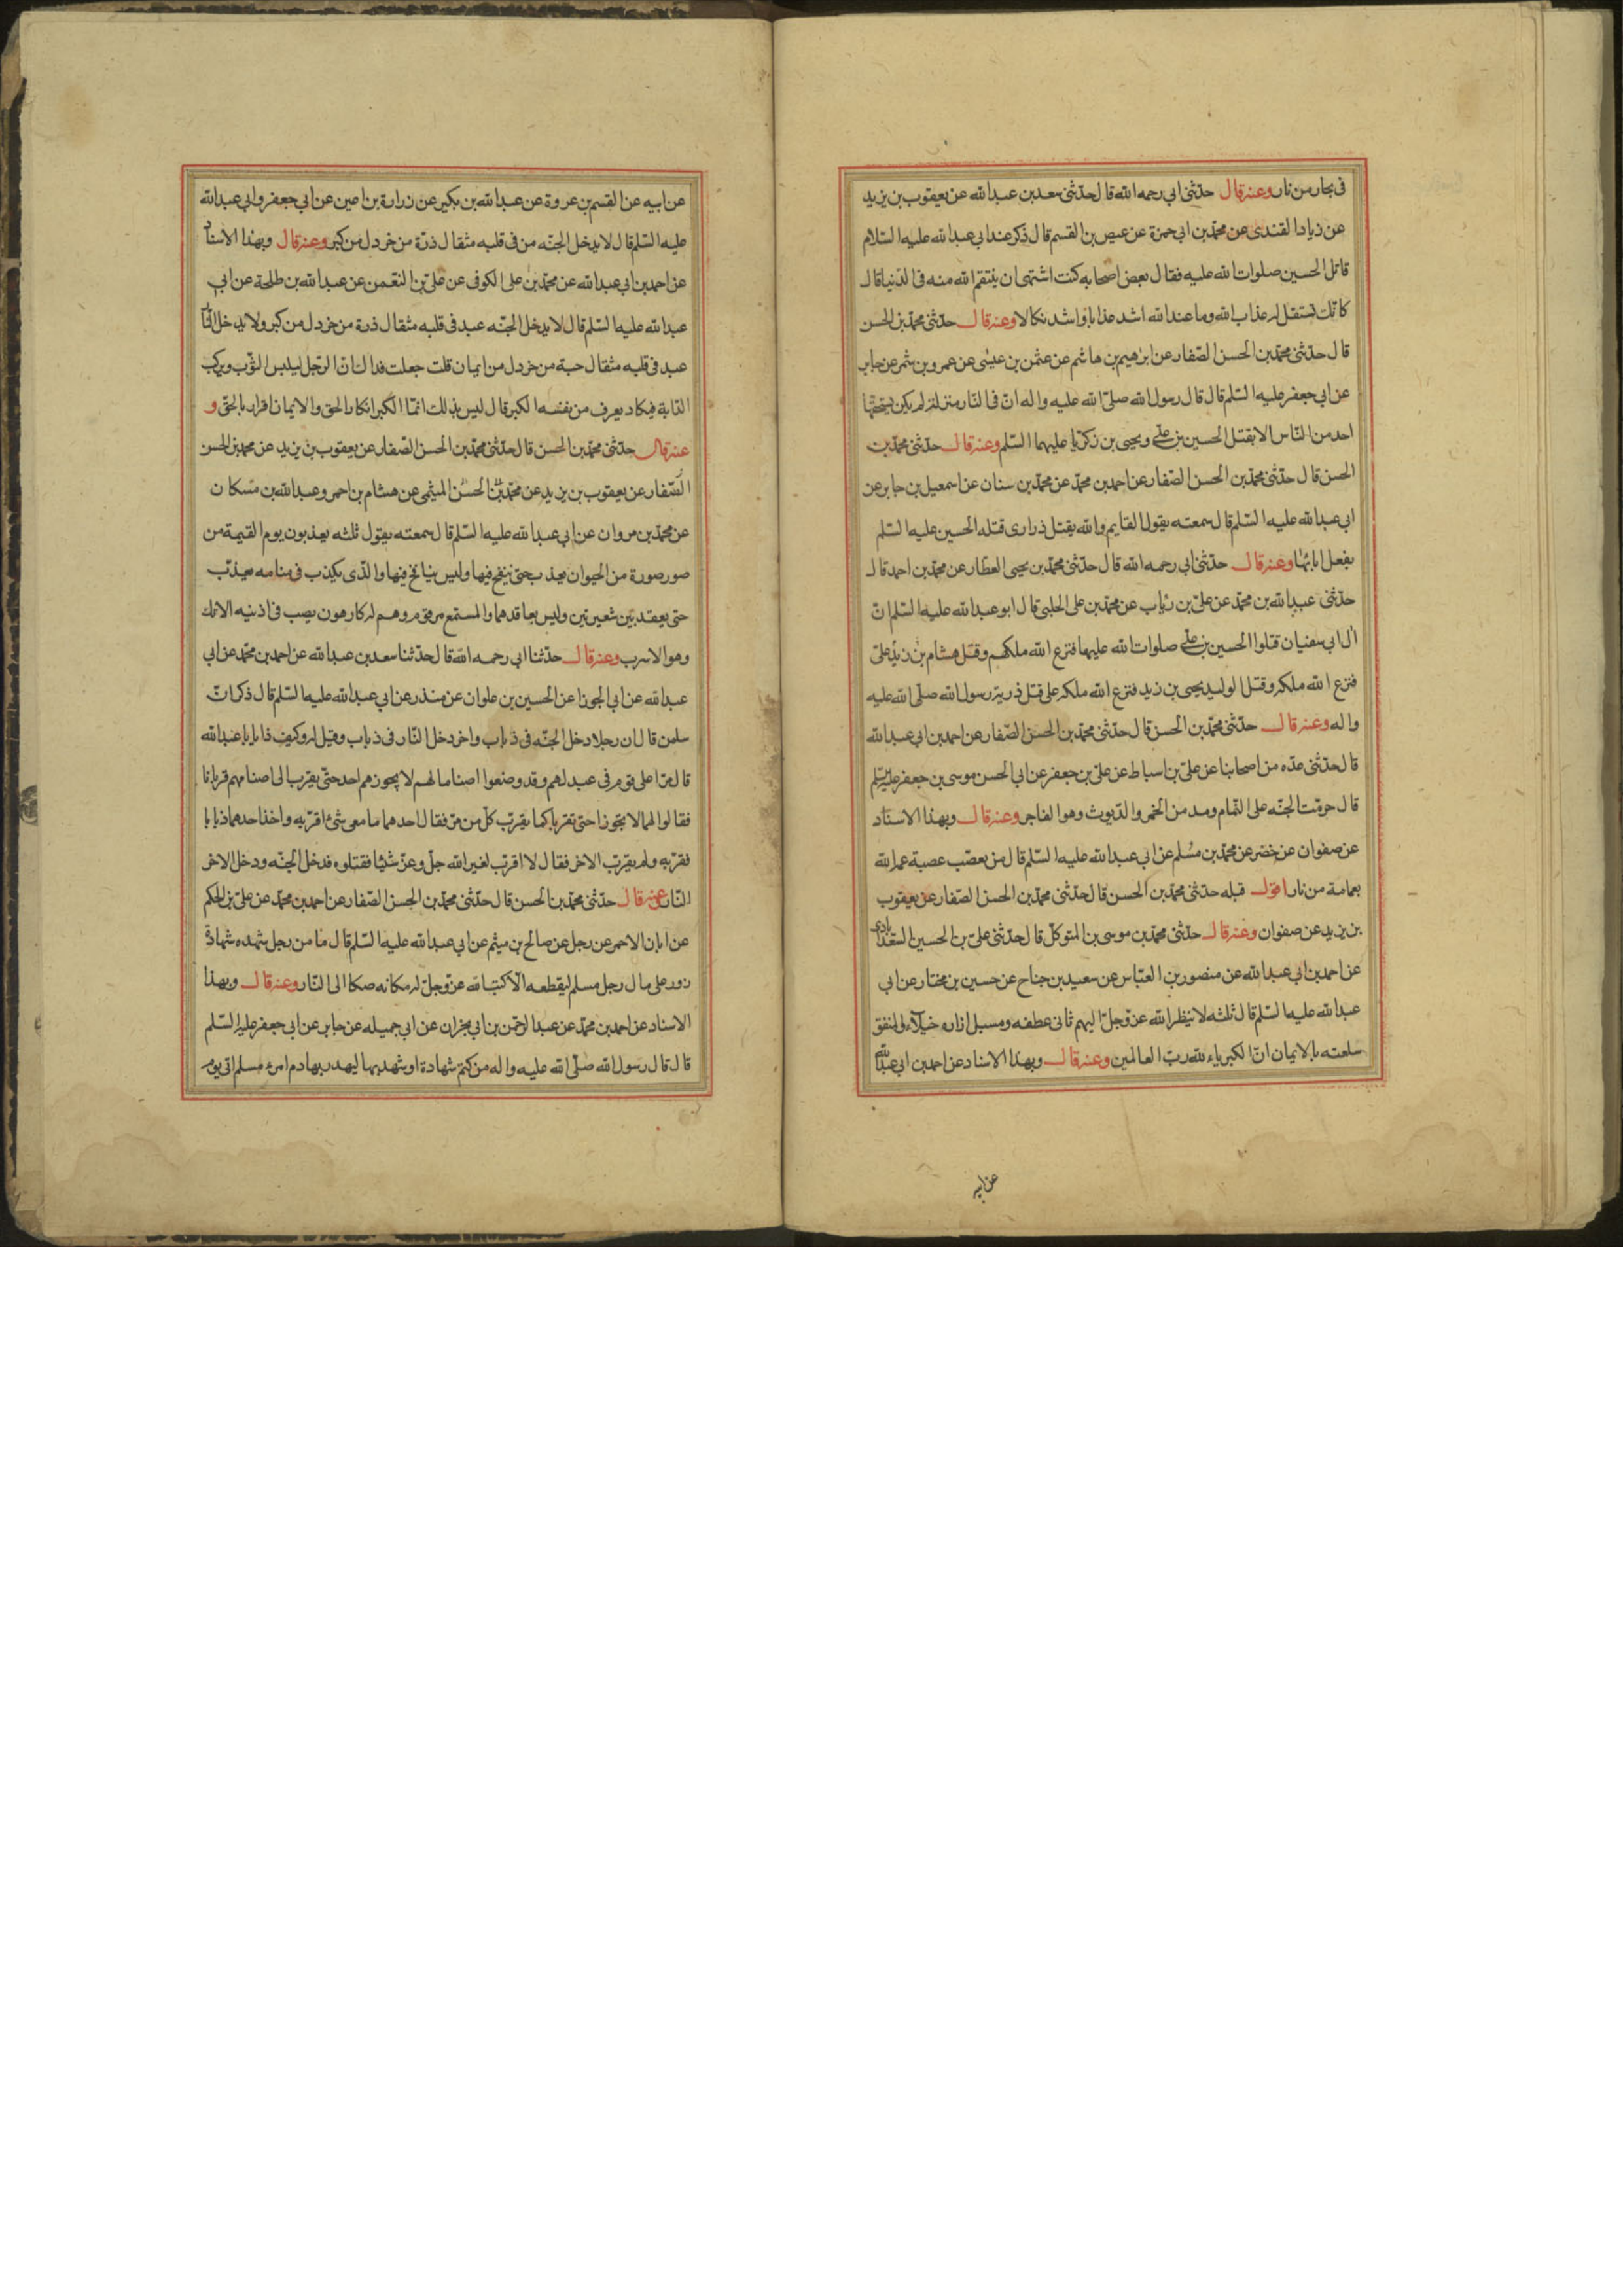 فى بحار من نار وعنه قال حدّثنى ابى رحمه الله قال حدّثنى سعد بن عبد الله عن يعقوب بن يزيد
عن زياد القندى عن محمّد بن ابى حمزة عن عيص بن القسم قال ذكر عند ابى عبد الله عليه السّلام
قاتل الحسين صلوات الله عليه فقال بعض اصحابه كنت اشتهى ان ينتقم الله منه فى الدّنيا قال
كانّك تستقل له عذاب الله وما عند الله اشد عذابا واشد نكالا وعنه قال حدّثنى محمّد بن الحسن
قال حدّثنى محمّد بن الحسن الصّفار عن ابرهيم بن هاشم عن عثمن بن عيسى عن عمرو بن شمر عن جابر
عن ابى جعفر عليه السّلم قال قال رسول الله صلّى الله عليه واله انّ فى النّار منزلة لم يكن يستحقّها
احد من النّاس الا بقتل الحسين بن علىّ ويحيى بن زكريّا عليهما السّلم وعنه قال حدّثنى محمّد بن
الحسن قال حدّثنى محمّد بن الحسن الصّفار عن احمد بن محمّد عن محمّد بن سنان عن اسمعيل بن جابر عن
ابى عبد الله عليه السّلم قال سمعته يقول القايم والله يقتل ذرارى قتله الحسين عليه السّلم
بفعل ابائها وعنه قال حدّثنى ابى رحمه الله قال حدّثنى محمّد بن يحيى العطّار عن محمّد بن احمد قال
حدّثنى عبد الله بن محمّد عن علىّ بن رئاب عن محمّد بن على الحلبى قال ابو عبد الله عليه السّلم انّ
ال ابى سفيان قتلوا الحسين بن علىّ صلوات الله عليهما فنزع الله ملكهم وقتل هشام بن زيد علىّ
فنزع الله ملكه وقتل الوليد يحيى بن زيد فنزع الله ملكه على قتل ذرية رسول الله صلّى الله عليه
واله وعنه قال حدّثنى محمّد بن الحسن قال حدّثنى محمّد بن الحسن الصّفار عن احمد بن ابى عبد الله
قال حدّثنى عدّه من اصحابنا عن علىّ بن اسباط عن علىّ بن جعفر عن ابى الحسن موسى بن جعفر عليه السّلم
قال حرّمت الجنّه على النّمام ومدمن الخمر والدّيوث وهو الفاجر وعنه قال وبهذا الاسناد
عن صفوان عن خضر عن محمّد بن مسلم عن ابى عبد الله عليه السّلم قال من تعصّب عصبه الله
بعمامة من نار اقول قبله حدّثنى محمّد بن الحسن قال حدّثنى محمّد بن الحسن الصّفار عن يعقوب
بن يزيد عن صفوان وعنه قال حدّثنى محمّد بن موسى بن المتوكّل قال حدّثنى علىّ بن الحسين السّعدابادى
عن احمد بن ابى عبد الله عن منصور بن العبّاس عن سعيد بن جناح عن حسين بن مختار عن ابى
عبد الله عليه السّلم قال ثلثه لا ينظر الله عزّ وجلّ اليهم ثانى عطفه ومسبل ازاره خيلاء والمنفق
سلعته بالايمان انّ الكبرياء لله ربّ العالمين وعنه قال وبهذا الاسناد عن احمد بن ابى عبد الله
عن ابيه
عن ابيه عن القسم بن عروة عن عبد الله بن بكير عن زرارة بن اعين عن ابى جعفر وابى عبد الله
عليه السّلم قال لا يدخل الجنّه من فى قلبه مثقال ذرّة من خردل من كبر وعنه قال وبهذا الاسناد
عن احمد بن ابى عبد الله عن محمّد بن على الكوفى عن علىّ بن النّعمن عن عبد الله بن طلحة عن ابى
عبد الله عليه السّلم قال لا يدخل الجنّه عبد فى قلبه مثقال ذرة من خردل من كبر ولا يدخل النّار
عبد فى قلبه مثقال حبة من خردل من ايمان قلت جعلت فداك انّ الرّجل ليلبس الثّوب ويركب
الدّابة فيكاد يعرف من نفسه الكبر قال ليس بذلك انمّا الكبر انكار الحق والايمان اقرار بالحقّ و
عنه قال حدّثنى محمّد بن الحسن قال حدّثنى محمّد بن الحسن الصّفار عن يعقوب بن يزيد عن محمد بن الحسن
الصّفار عن يعقوب بن يزيد عن محمّد بن الحسن الميثمى عن هشام بن احمر وعبد الله بن مسكان
عن محمّد بن مروان عن ابى عبد الله عليه السّلم قال سمعته يقول ثلثه يعذبون يوم القيمة من
صور صورة من الحيوان يعذب حتى ينفخ فيها وليس بنافخ فيها والذّى يكذب فى منامه يعذّب
حتى يعقد بين شعيرتين وليس بعاقدهما والمستمع من قوم وهم له كارهون يصب فى اذنيه الانك
وهو الاسرب وعنه قال حدّثنا ابى رحمه الله قال حدّثنا سعد بن عبد الله عن احمد بن محمّد عن ابى
عبد الله عن ابى الجوزا عن الحسين بن علوان عن منذر عن ابى عبد الله عليه السّلم قال ذكر انّ
سلمن قال ان رجلا دخل الجنّه فى ذباب واخر دخل النّار فى ذباب وقيل له وكيف ذا يا ابا عبد الله
قال مرّا على قوم فى عيد لهم وقد وضعوا اصناما لهم لا يجوز بهم احد حتّى يقرب الى اصنامهم قربانا
فقالوا لهما لا تجوزا حتى تقربا كما يقرّب كلّ من مرّ فقال احدهما ما معى شئ اقرّبه واخذ احدهما ذبابا
فقرّبه ولم يقرّب الاخر فقال لا اقرّب لغير الله جلّ وعزّ شيئا فقتلوه فدخل الجنّه ودخل الاخر
النّار عنه قال حدّثنى محمّد بن الحسن قال حدّثنى محمّد بن الحسن الصّفار عن احمد بن محمّد عن علىّ بن الحكم
عن ابان الاحمر عن رجل عن صالح بن ميثم عن ابى عبد الله عليه السّلم قال ما من رجل شهد شهادة
زور على مال رجل مسلم ليقطعه الّا كتب الله عزّ وجلّ له مكانه صكا الى النّار وعنه قال وبهذا
الاسناد عن احمد بن محمّد عن عبد الرّحمن بن ابى نجران عن ابى جميله عن جابر عن ابى جعفر عليه السّلم
قال قال رسول الله صلّى الله عليه واله من كتم شهادة او شهد بها ليهدر بها دم امرء مسلم اتى يوم